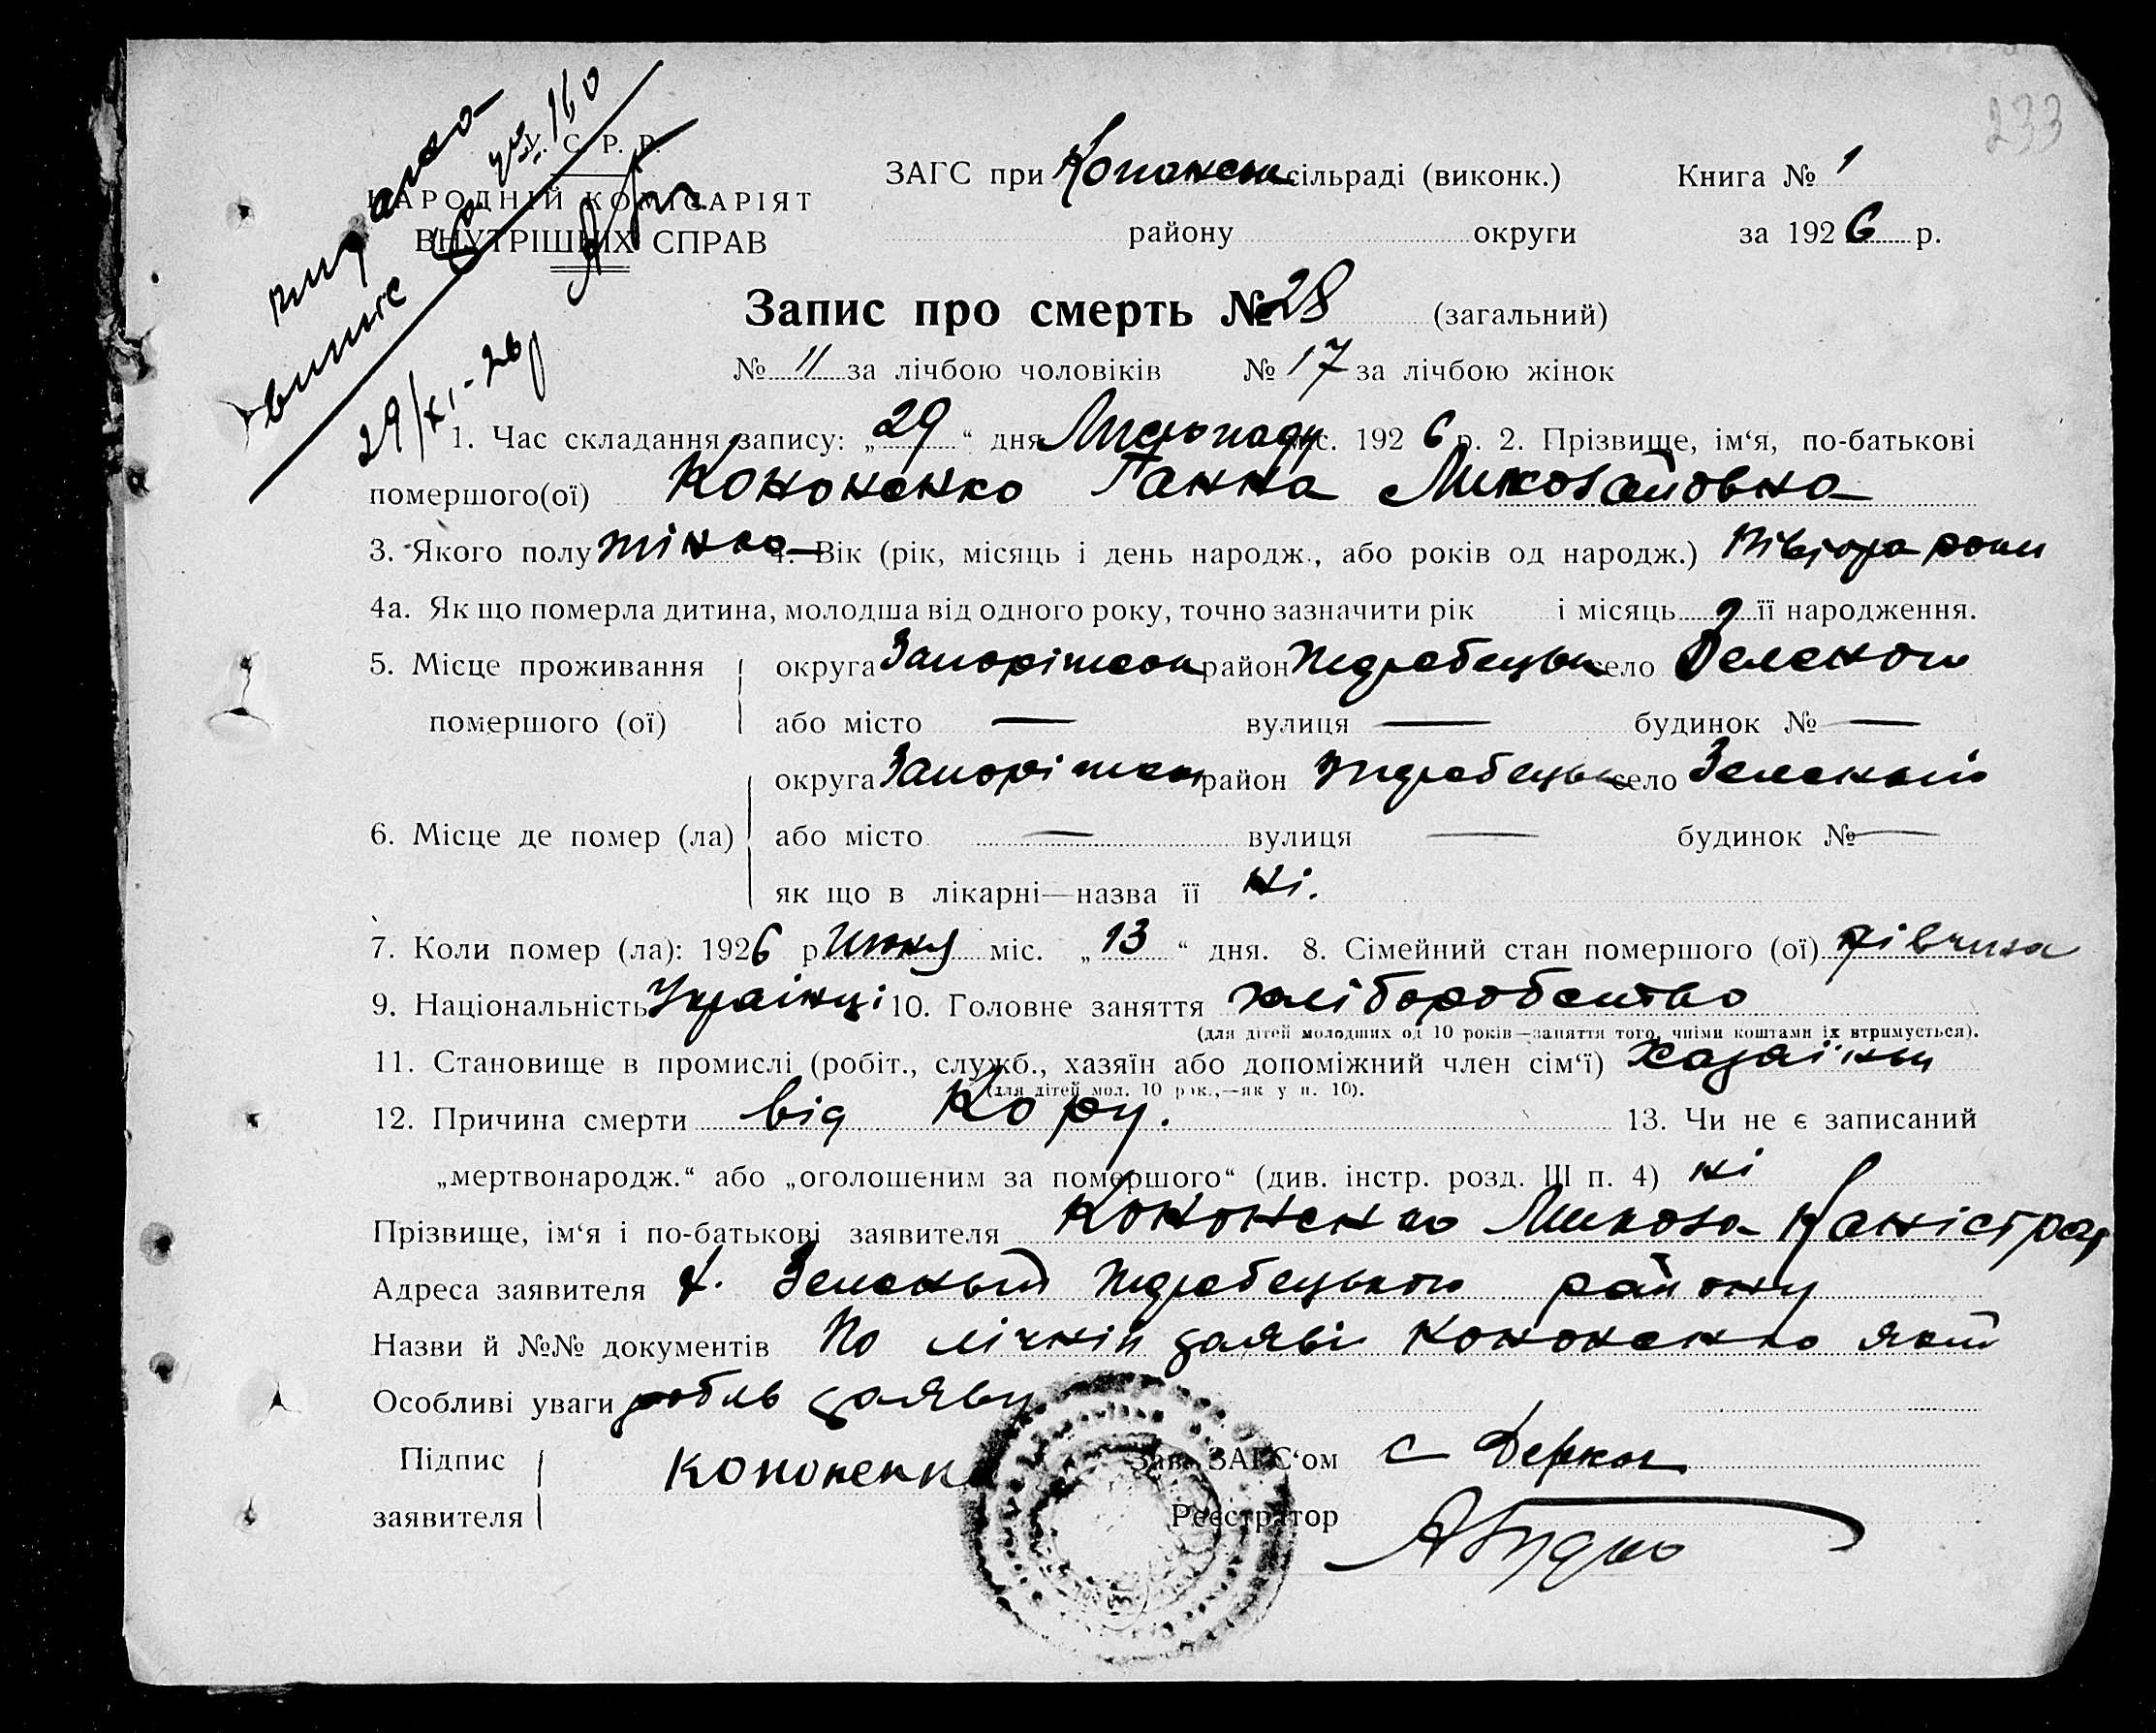 233
У. С. Р. Р.
НАРОДНІЙ КОМІСАРІЯТ
ВНУТРІШНІХ СПРАВ
29/XI-26
ЗАГС при сільраді (виконк.) Книга № 1
району округи за 1926 р.
Запис про смерть № 28 (загальний)
№ 11 за лічбою чоловіків № 17 за лічбою жінок
1. Час складання запису: „29“ дня Листопаду міс. 1926 р. 2. Прізвище, ім‘я, по-батькові
помершого(ої) Кононенко Ганна Миколайовна
3. Якого полу жінка 4. Вік (рік, місяць і день народж., або років од народж.) Півтора роки
4а. Як що померла дитина, молодша від одного року, точно зазначити рік і місяць її народження.
5. Місце проживання округа Запоріжськ район Жеребецьк село
помершого (ої) або місто — вулиця — будинок № —
округа Запоріжськ район Жеребецьк село Зелений
6. Місце де помер (ла) або місто — вулиця — будинок № —
як що в лікарні—назва її ні.
7. Коли помер (ла): 1926 р. Июня міс. „13“ дня. 8. Сімейний стан помершого (ої) дівчина
9. Національність Українці 10. Головне заняття хліборобство
(для дітей молодших од 10 років—заняття того, чиїми коштами їх втримується).
11. Становище в промислі (робіт., служб., хазяїн або допоміжний член сім‘ї)
(для дітей мол. 10 рок.,—як у п. 10).
12. Причина смерти від Кору. 13. Чи не є записаний
„мертвонародж.“ або „оголошеним за помершого“ (див. інстр. розд. III п. 4) ні
Прізвище, ім‘я і по-батькові заявителя Кононенко Микола
Адреса заявителя х. Зелений Жеребецького району
Назви й №№ документів По лічній заяві Кононенко який
Особливі уваги робив заяву
Підпис Кононенко Зав. ЗАГС‘ом
заявителя Реєстратор